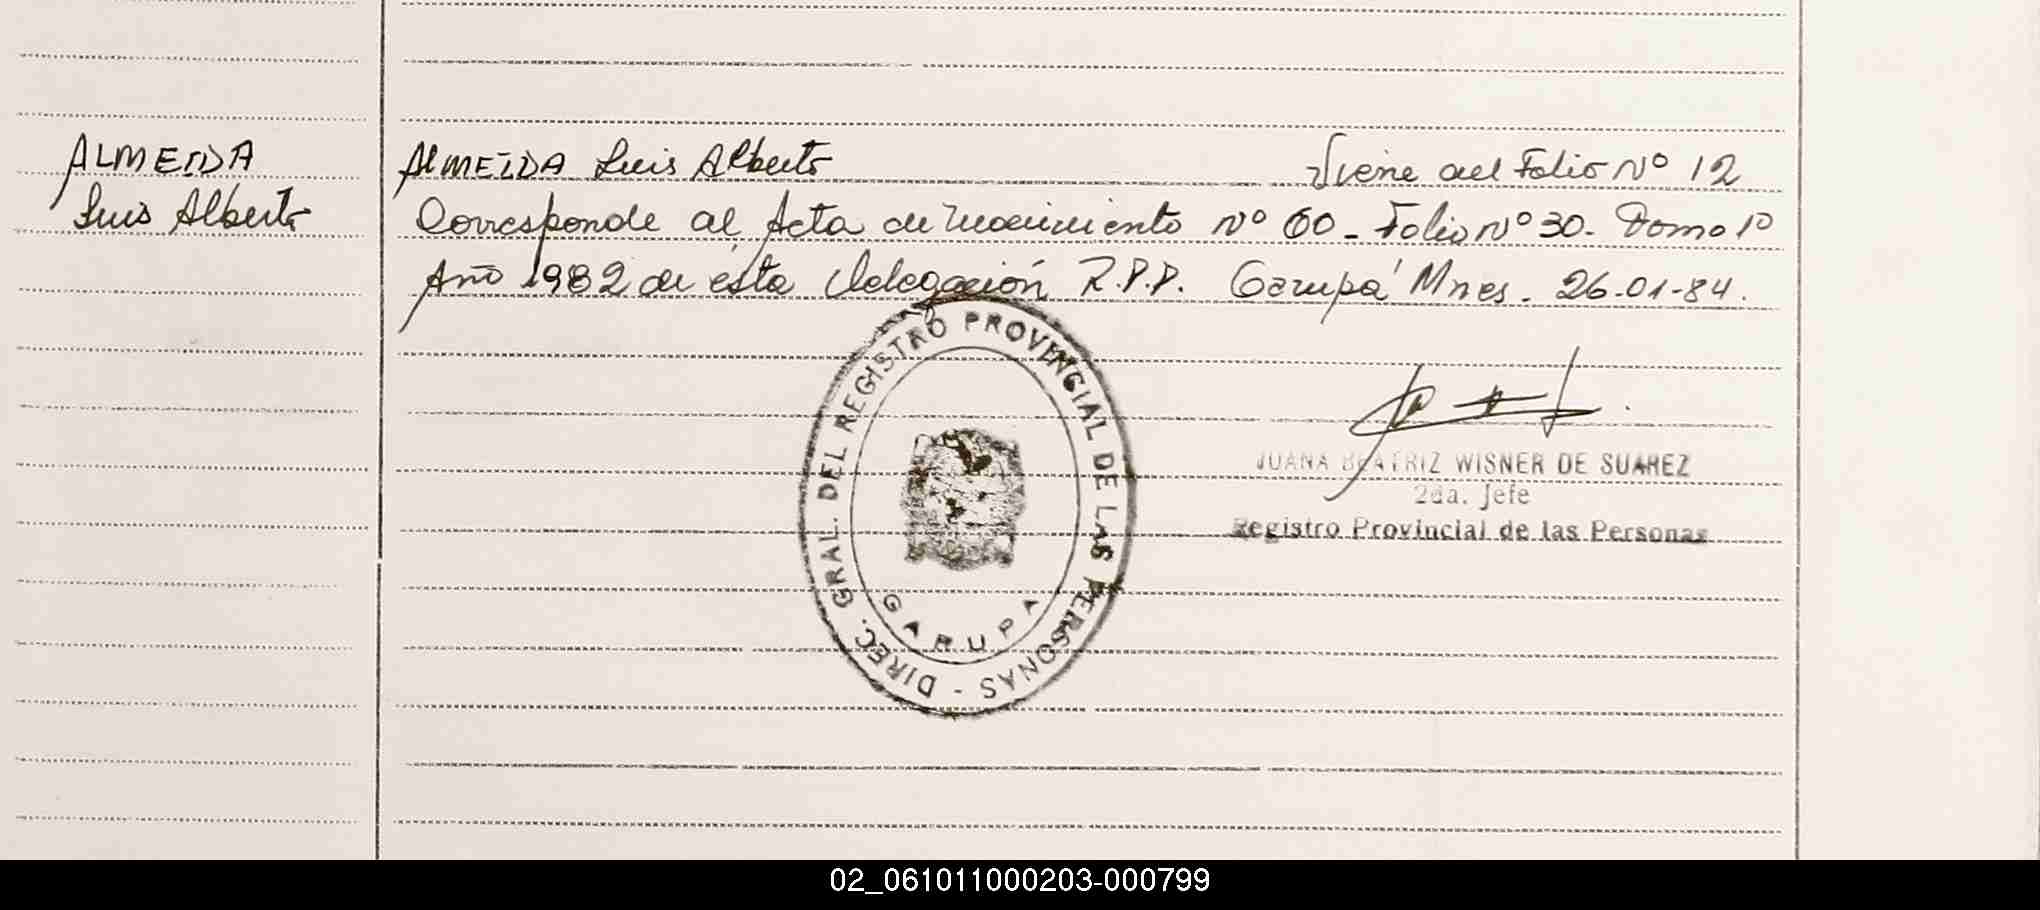 ALMEIDA
Luis Alberto
ALMEIDA Luis Alberto Viene del Folio Nº 12
Corresponde al Acta de Nacimiento Nº 60 - Folio Nº 30. Tomo 1º
Año 1982 de ésta Delegación R.P.P. Garupá Mnes. 26-01-84.
DIREC. GRAL. DEL REGISTRO PROVINCIAL DE LAS PERSONAS -
GARUPA
JUANA BEATRIZ WISNER DE SUAREZ
2da. Jefe
Registro Provincial de las Personas
02_061011000203-000799